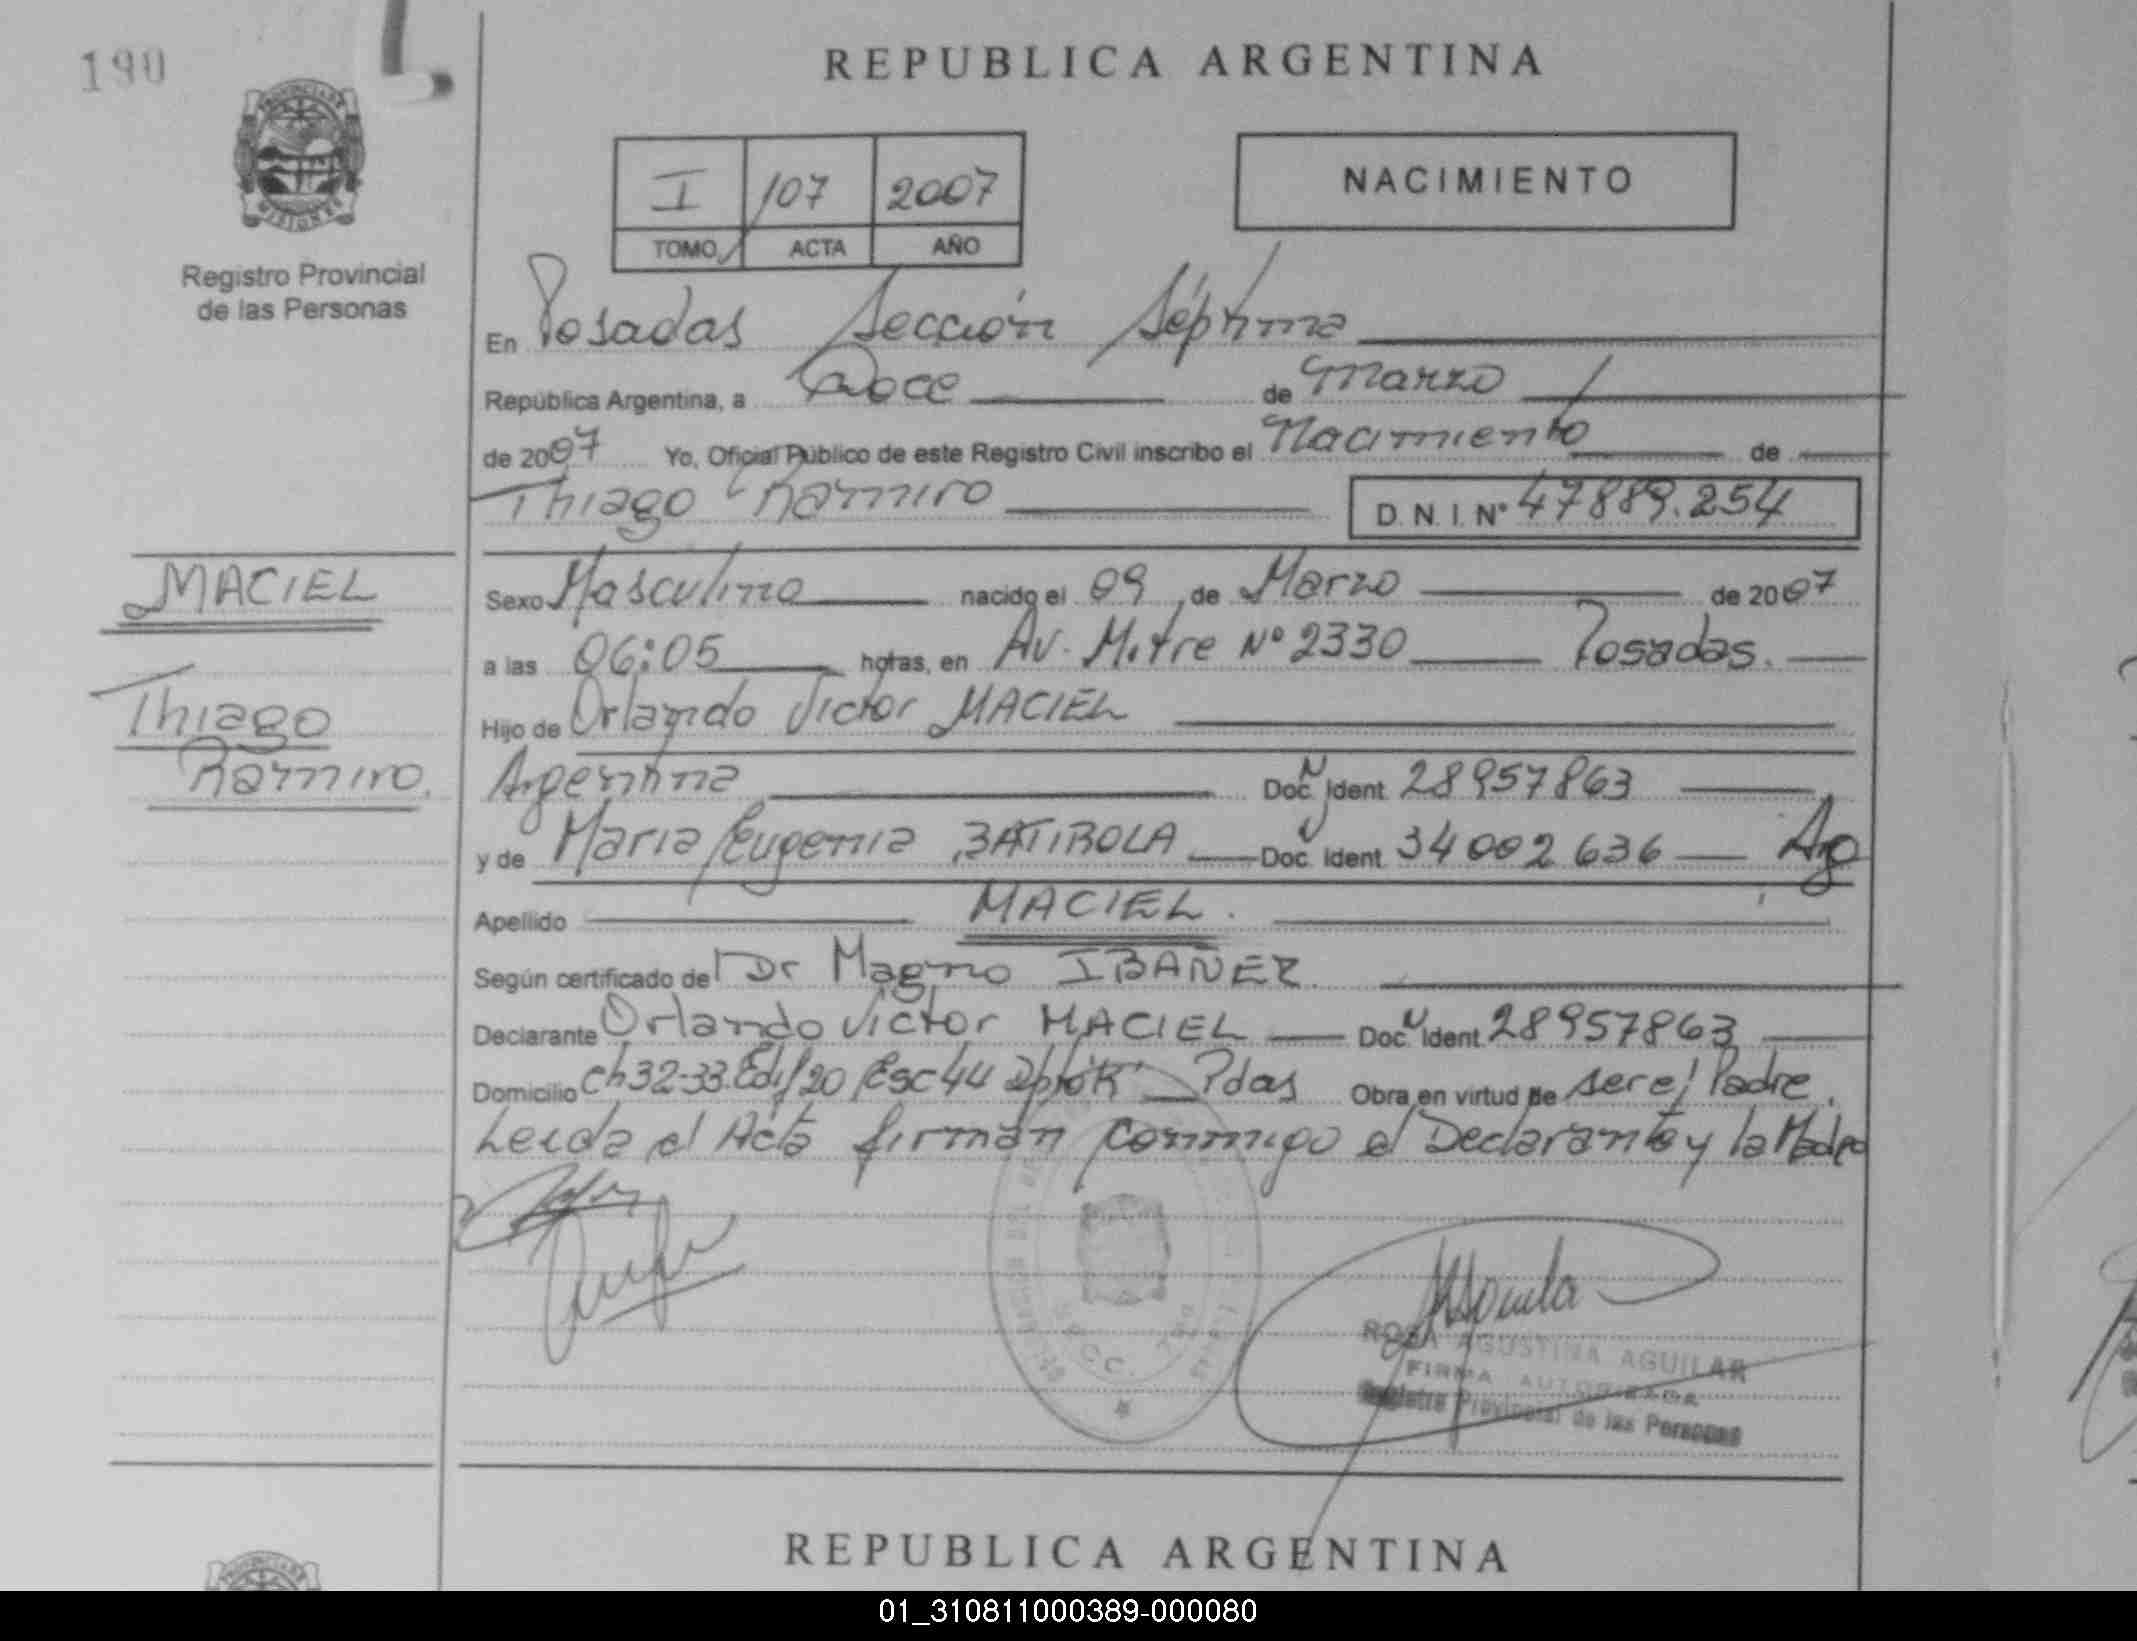 190
REPUBLICA ARGENTINA
I 107 2007
TOMO ACTA AÑO
NACIMIENTO
Registro Provincial
de las Personas
En Posadas Sección Séptima
República Argentina, a Doce de Marzo
de 2007 Yo, Oficial Público de este Registro Civil inscribo el Nacimiento de
Thiago Ramiro D.N.I. Nº 47889.254
MACIEL
Thiago
Ramiro.
Sexo Masculino nacido el 09 de Marzo de 2007
a las 06:05 horas, en Av. Mitre Nº 2330 Posadas.
Hijo de Orlando Victor MACIEL
Argentina Doc. Ident 28957863
y de Maria Eugenia BATIROLA Doc. Ident 34002636 Arg
Apellido MACIEL.
Según certificado de Dr Magno IBAÑEZ
Declarante Orlando Victor MACIEL Doc. Ident 28957863
Domicilio Ch 32-33. Edif 20 Esc 44 Pdas Obra en virtud de ser el Padre.
Leida el Acta firman conmigo el Declarante y la Madre
ROSA AGUSTINA AGUILAR
FIRMA AUTORIZADA
Registro Provincial de las Personas
REPUBLICA ARGENTINA
01_310811000389-000080